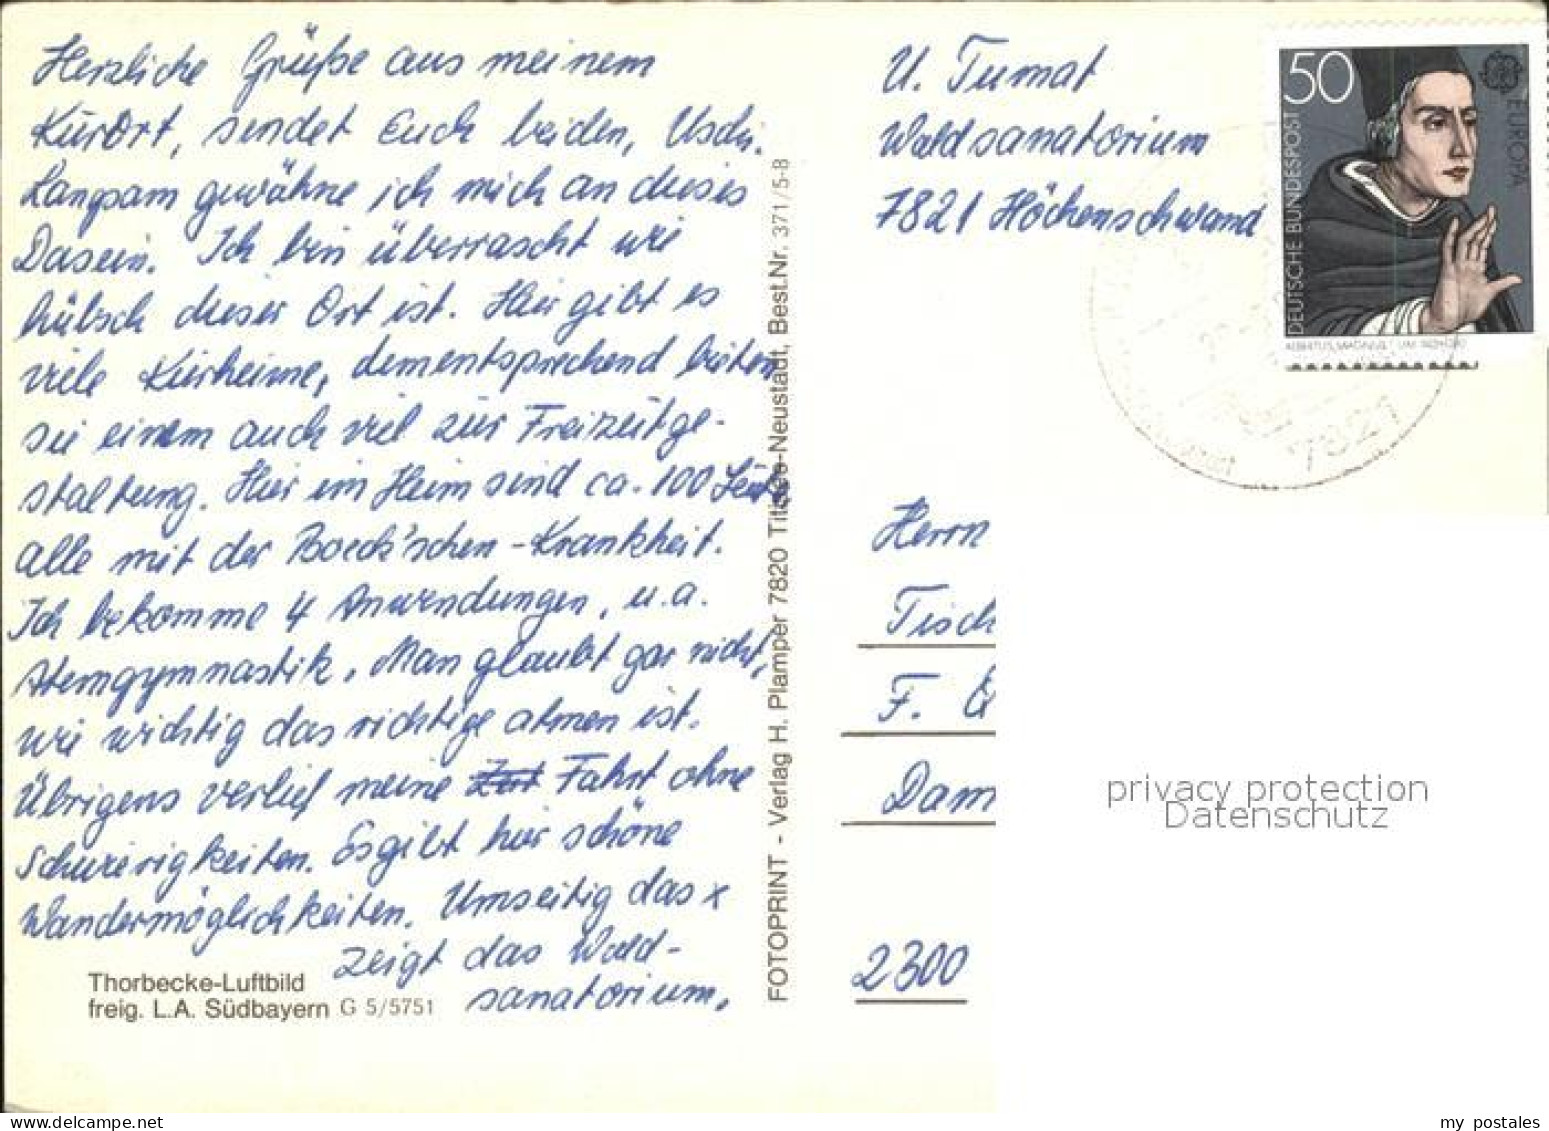 Herzliche Grüße aus meinem
Kurort, sendet Euch beiden, Uschi.
Langsam gewöhne ich mich an dieses
Dasein. Ich bin überrascht wie
hübsch dieser Ort ist. Hier gibt es
viele Kurheime, dementsprechend bieten
sie einem auch viel zur Freizeitge-
staltung. Hier im Heim sind ca. 100 Leute
alle mit der Boeck'schen-Krankheit.
Ich bekomme 4 Anwendungen, u.a.
Atemgymnastik. Man glaubt gar nicht,
wie wichtig das richtige atmen ist.
Übrigens verlief meine Fahrt ohne
Schwierigkeiten. Es gibt hier schöne
Wandermöglichkeiten. Umseitig das x
zeigt das Wald-
sanatorium.
Thorbecke-Luftbild
freig. L.A. Südbayern G 5/5751
FOTOPRINT - Verlag H. Plamper 7820 Titisee-Neustadt, Best.Nr. 371/5-B
U. Tumat
Waldsanatorium
7821 Höchenschwand
50
DEUTSCHE BUNDESPOST
EUROPA
ALBERTUS MAGNUS
7821
Herrn
Tisch
F.
Dam
2300
privacy protection
Datenschutz
my postales